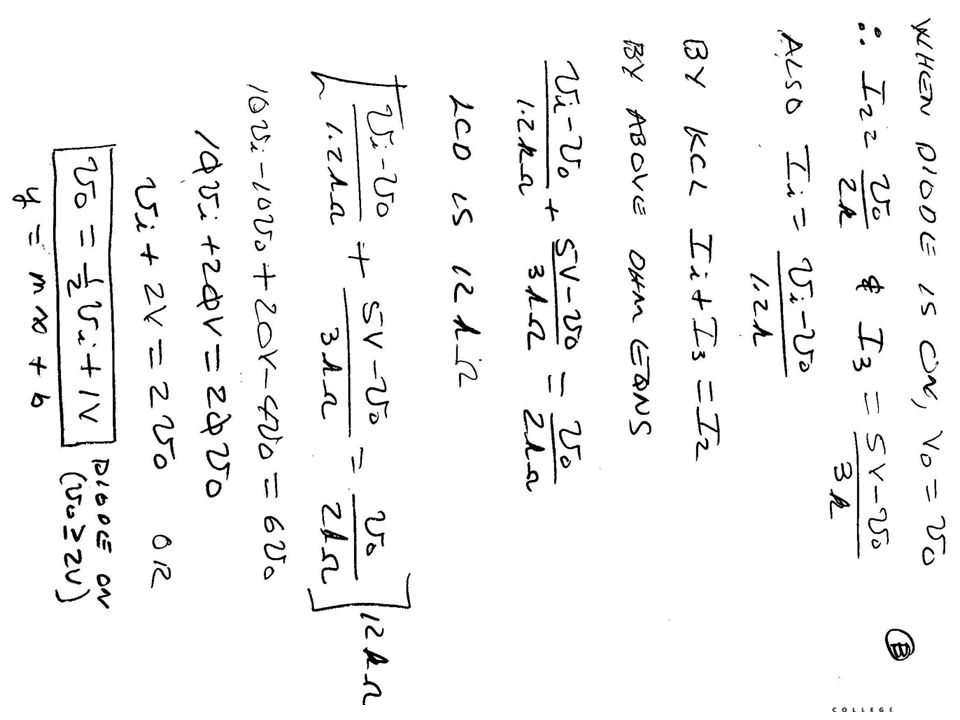 WHEN DIODE IS ON, V0 = v0
∴ I2 = v0/2k & I3 = 5V-v0/3k
ALSO Ii = vi-v0/1.2k
BY KCL Ii + I3 = I2
BY ABOVE OHM EQNS
vi-v0/1.2kΩ + 5V-v0/3kΩ = v0/2kΩ
LCD IS 12kΩ
[vi-v0/1.2kΩ + 5V-v0/3kΩ = v0/2kΩ] 12kΩ
10vi-10v0+20V-4v0 = 6v0
10vi+20V = 20v0
vi + 2V = 2v0 OR
v0 = 1/2 vi + 1V DIODE ON
(v0 ≥ 2V)
y = mx + b
B
COLLEGE